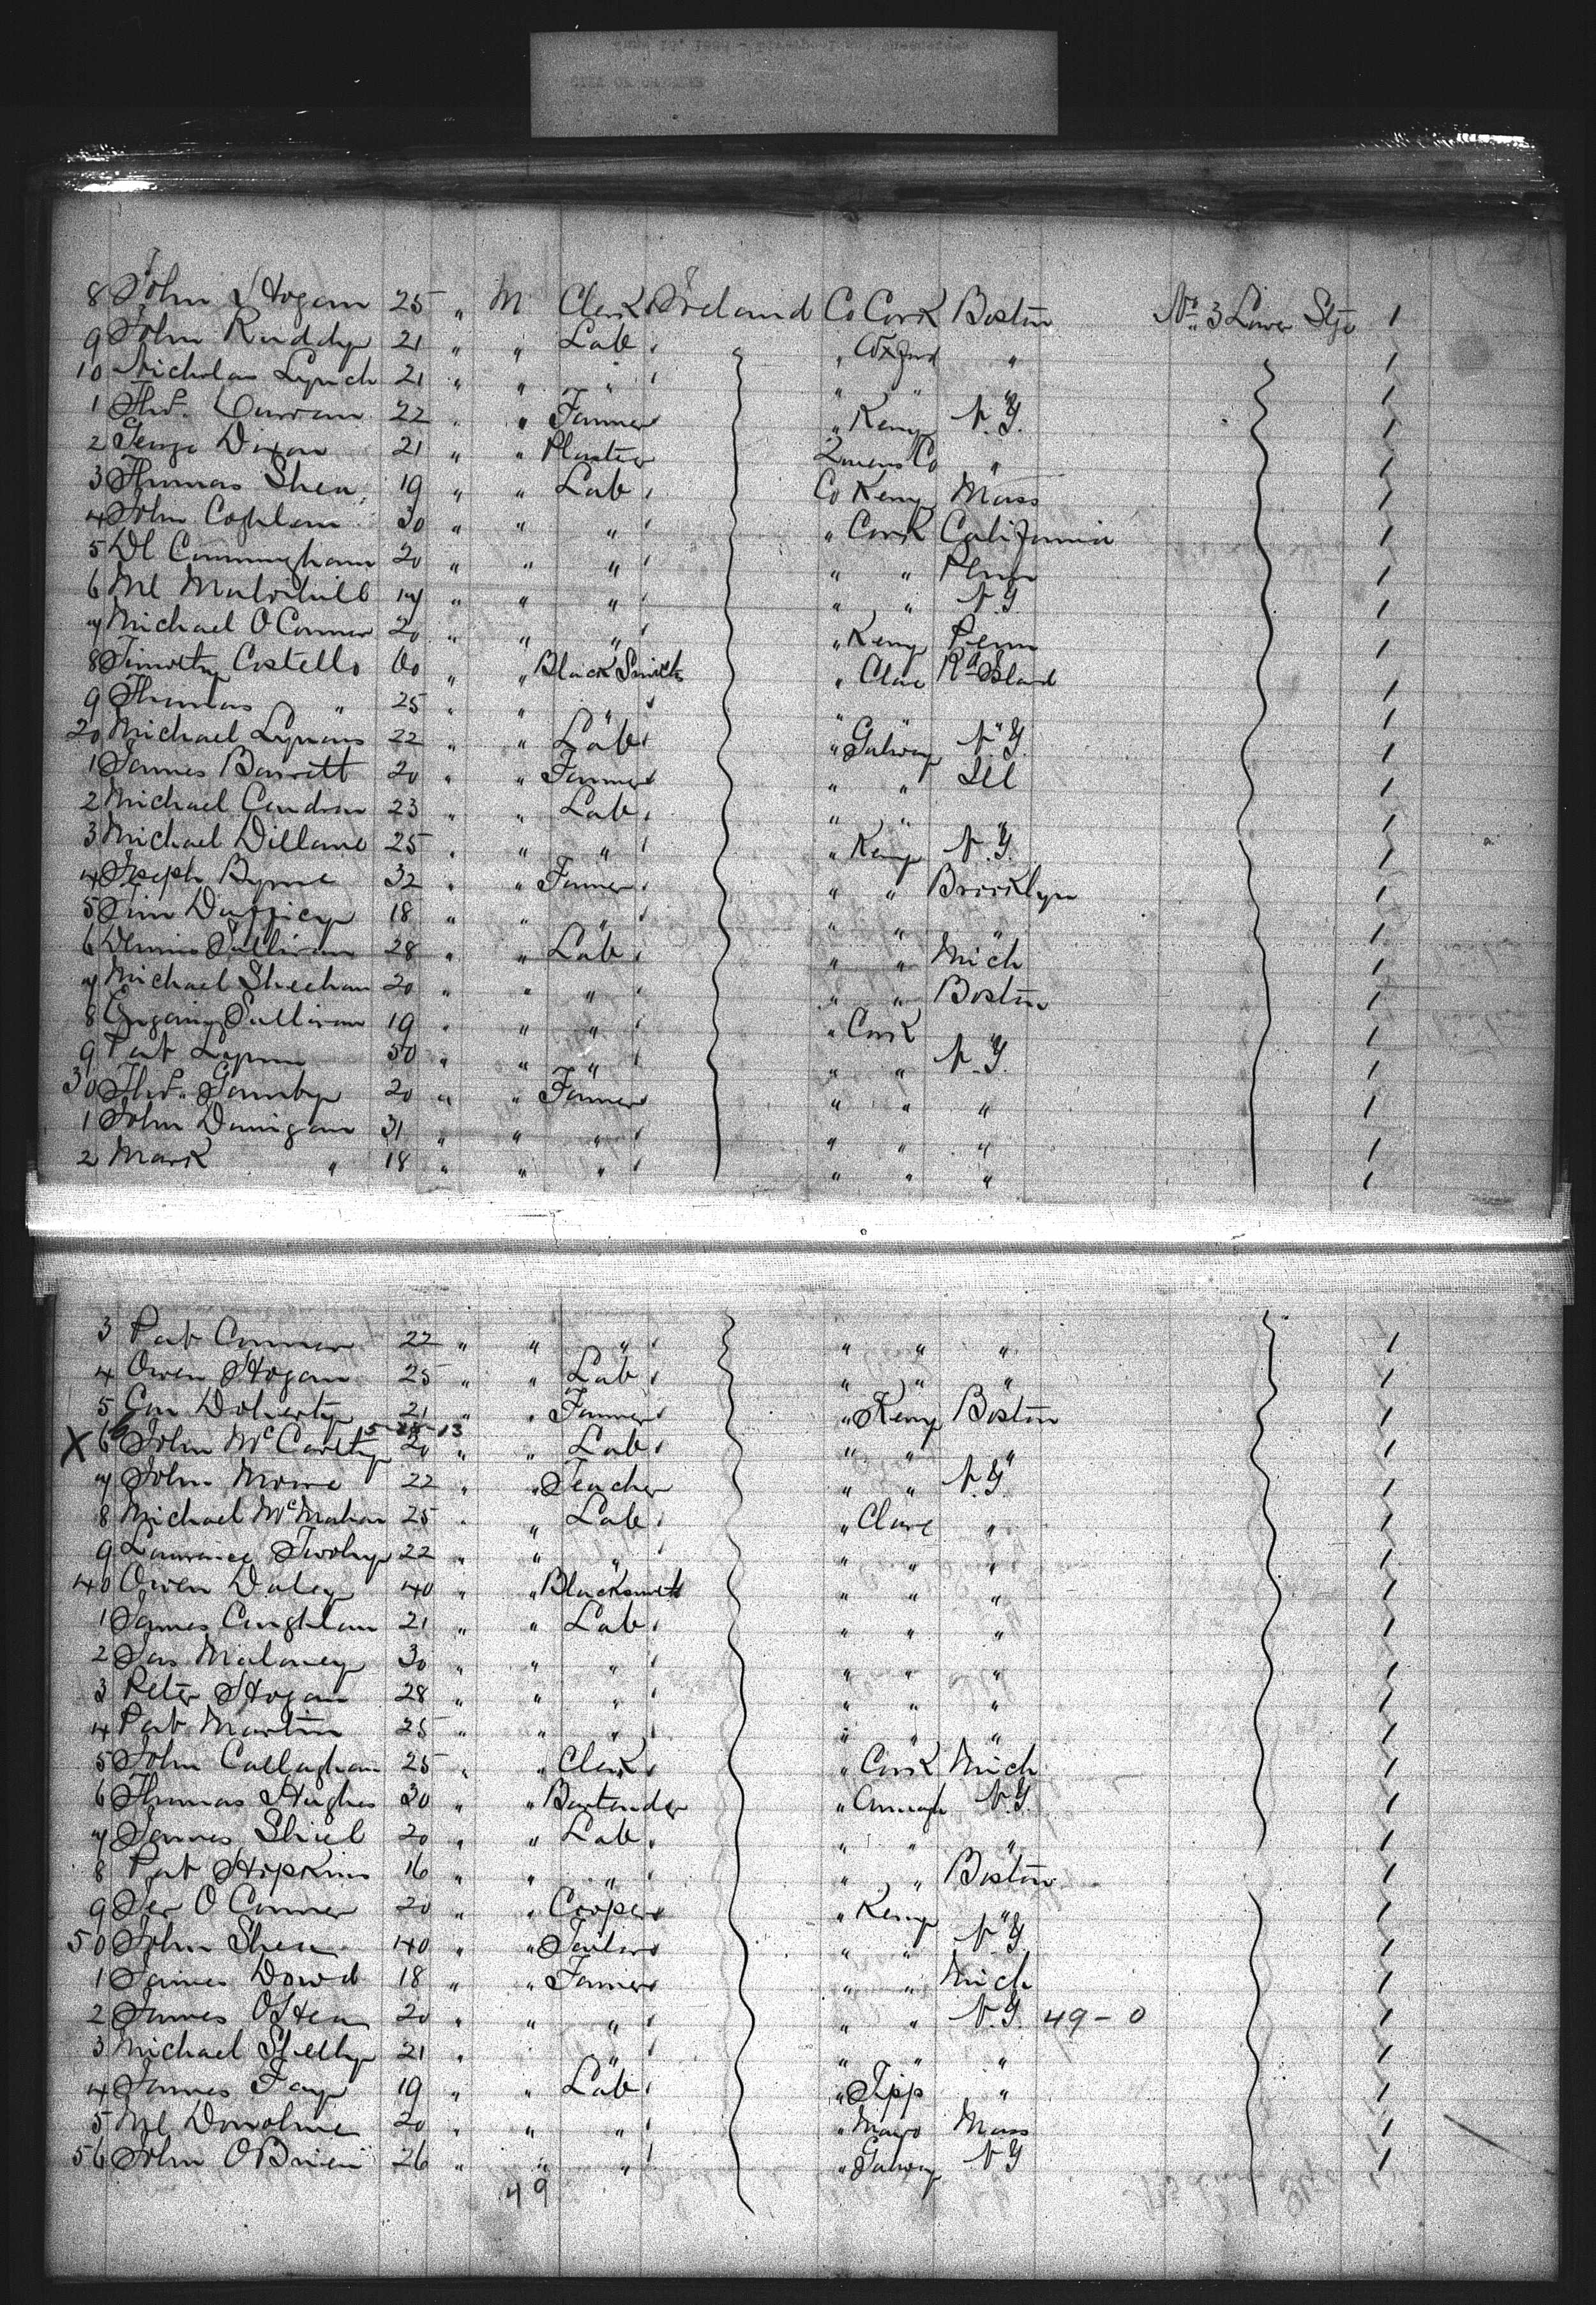 8 John Hogan 25 " M Clerk Ireland Co Cork Boston No 3 Lower Stge 1
9 John Ruddy 21 " " Lab " Wexford " 1
10 Nicholas Lynch 21 " " " " " " 1
1 Thos. Curran 22 " " Farmer " Kerry N.Y. 1
2 George Dixon 21 " " Plaster Queens Co " 1
3 Thomas Shea 19 " " Lab Co Kerry Mass 1
4 John Coghlan 30 " " " " Cork California 1
5 Dl Cunningham 20 " " " " " Penn 1
6 Ml Mulvihill 17 " " " " " N.Y 1
7 Michael O Connor 20 " " " " Kerry Penn 1
8 Timothy Costello 60 " " Black Smith " Clare Rd Island 1
9 Thomas " 25 " " " " " " 1
20 Michael Lynans 22 " " Lab " Galway N.Y. 1
1 James Barrett 20 " " Farmer " " Ill 1
2 Michael Condron 23 " " Lab " " " 1
3 Michael Dillane 25 " " " " Kerry N.Y. 1
4 Joseph Byrne 32 " " Farmer " " Brooklyn 1
5 Jim Dufficy 18 " " " " " " 1
6 Dennis Sullivan 28 " " Lab " " Mich 1
7 Michael Sheehan 20 " " " " " Boston 1
8 Sullivan 19 " " " " Cork " 1
9 Pat 50 " " " " " N.Y. 1
30 Thos. 20 " " Farmer " " " 1
1 John Dunigan 31 " " " " " " 1
2 Mark " 18 " " " " " " 1
3 Pat Connor 22 " " " " " " 1
4 Owen Hogan 25 " " Lab " " " 1
5 Con Doherty 21 " " Farmer " Kerry Boston 1
X 6 John McCarthy 20 " " Lab " " " 1
7 John 22 " " Teacher " " N.Y 1
8 Michael McMahon 25 " " Lab " Clare " 1
9 Lawrence Twohy 22 " " " " " " 1
40 Owen Daley 40 " " Blacksmith " " " 1
1 James Coughlan 21 " " Lab " " " 1
2 Jas Maloney 30 " " " " " " 1
3 Peter Hogan 28 " " " " " " 1
4 Pat Martin 25 " " " " " " 1
5 John Callaghan 25 " " Clerk " Cork Mich 1
6 Thomas Hughes 30 " " Bartender " Armagh N.Y. 1
7 James Shiel 20 " " Lab " " " 1
8 Pat Hopkins 16 " " " " " Boston 1
9 Jer O Connor 20 " " Cooper " Kerry " 1
50 John Shea 40 " " Tailor " " N.Y 1
1 James Dowd 18 " " Farmer " " Mich 1
2 James O'Hea 20 " " " " " N.Y. 49-0 1
3 Michael Sheehy 21 " " " " " " 1
4 James Fay 19 " " Lab " Tipp " 1
5 Ml Donohue 20 " " " " Mayo Mass 1
56 John O Brien 26 " " " " Galway N.Y 1
49